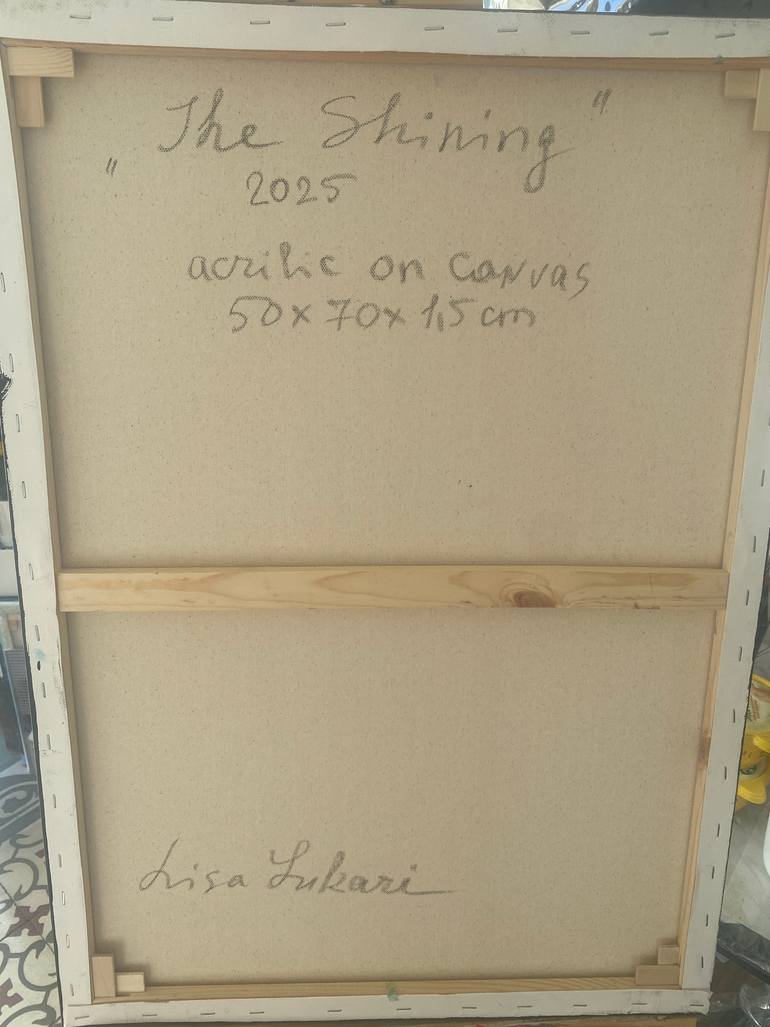 "The Shining"
2025
acrilic on canvas
50x70x1,5 cm
Lisa Lukari